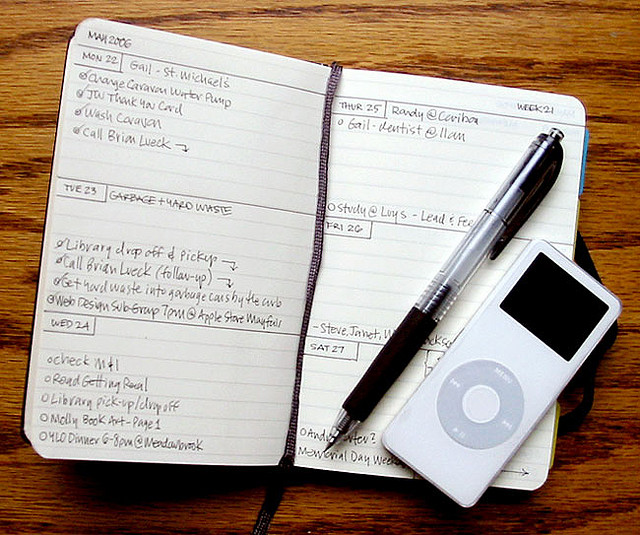 MAY 2006
MON 22 Gail - St. Michael's
Change Caravan Water Pump
JW Thank You Card
Wash Caravan
Call Brian Lueck →
TUE 23 GARBAGE + YARD WASTE
Library drop off & pickup →
Call Brian Lueck (follow-up) →
Get hard waste into garbage cans by the curb
Web Design Sub-Group 7pm @ Apple Store Mayfair
WED 24
check m+1
Read Getting Real
Library pick-up/drop off
Molly Book Art - Page 1
YLO Dinner 6-8pm @ Meadowbrook
WEEK 21
THUR 25 Randy @ Caribou
Gail - dentist @ 11am
Study @ Luy's - Lead &
FRI 26
- Steve, Janet,
SAT 27
Memorial Day
MENU